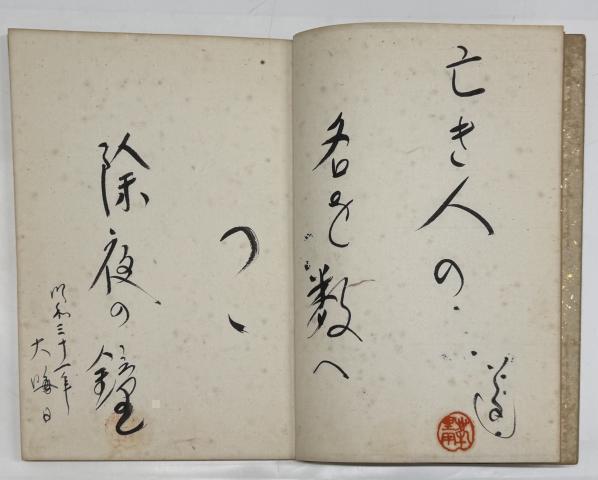 亡き人の
名を数へ
つゝ
除夜の鐘
昭和三十一年
大晦日